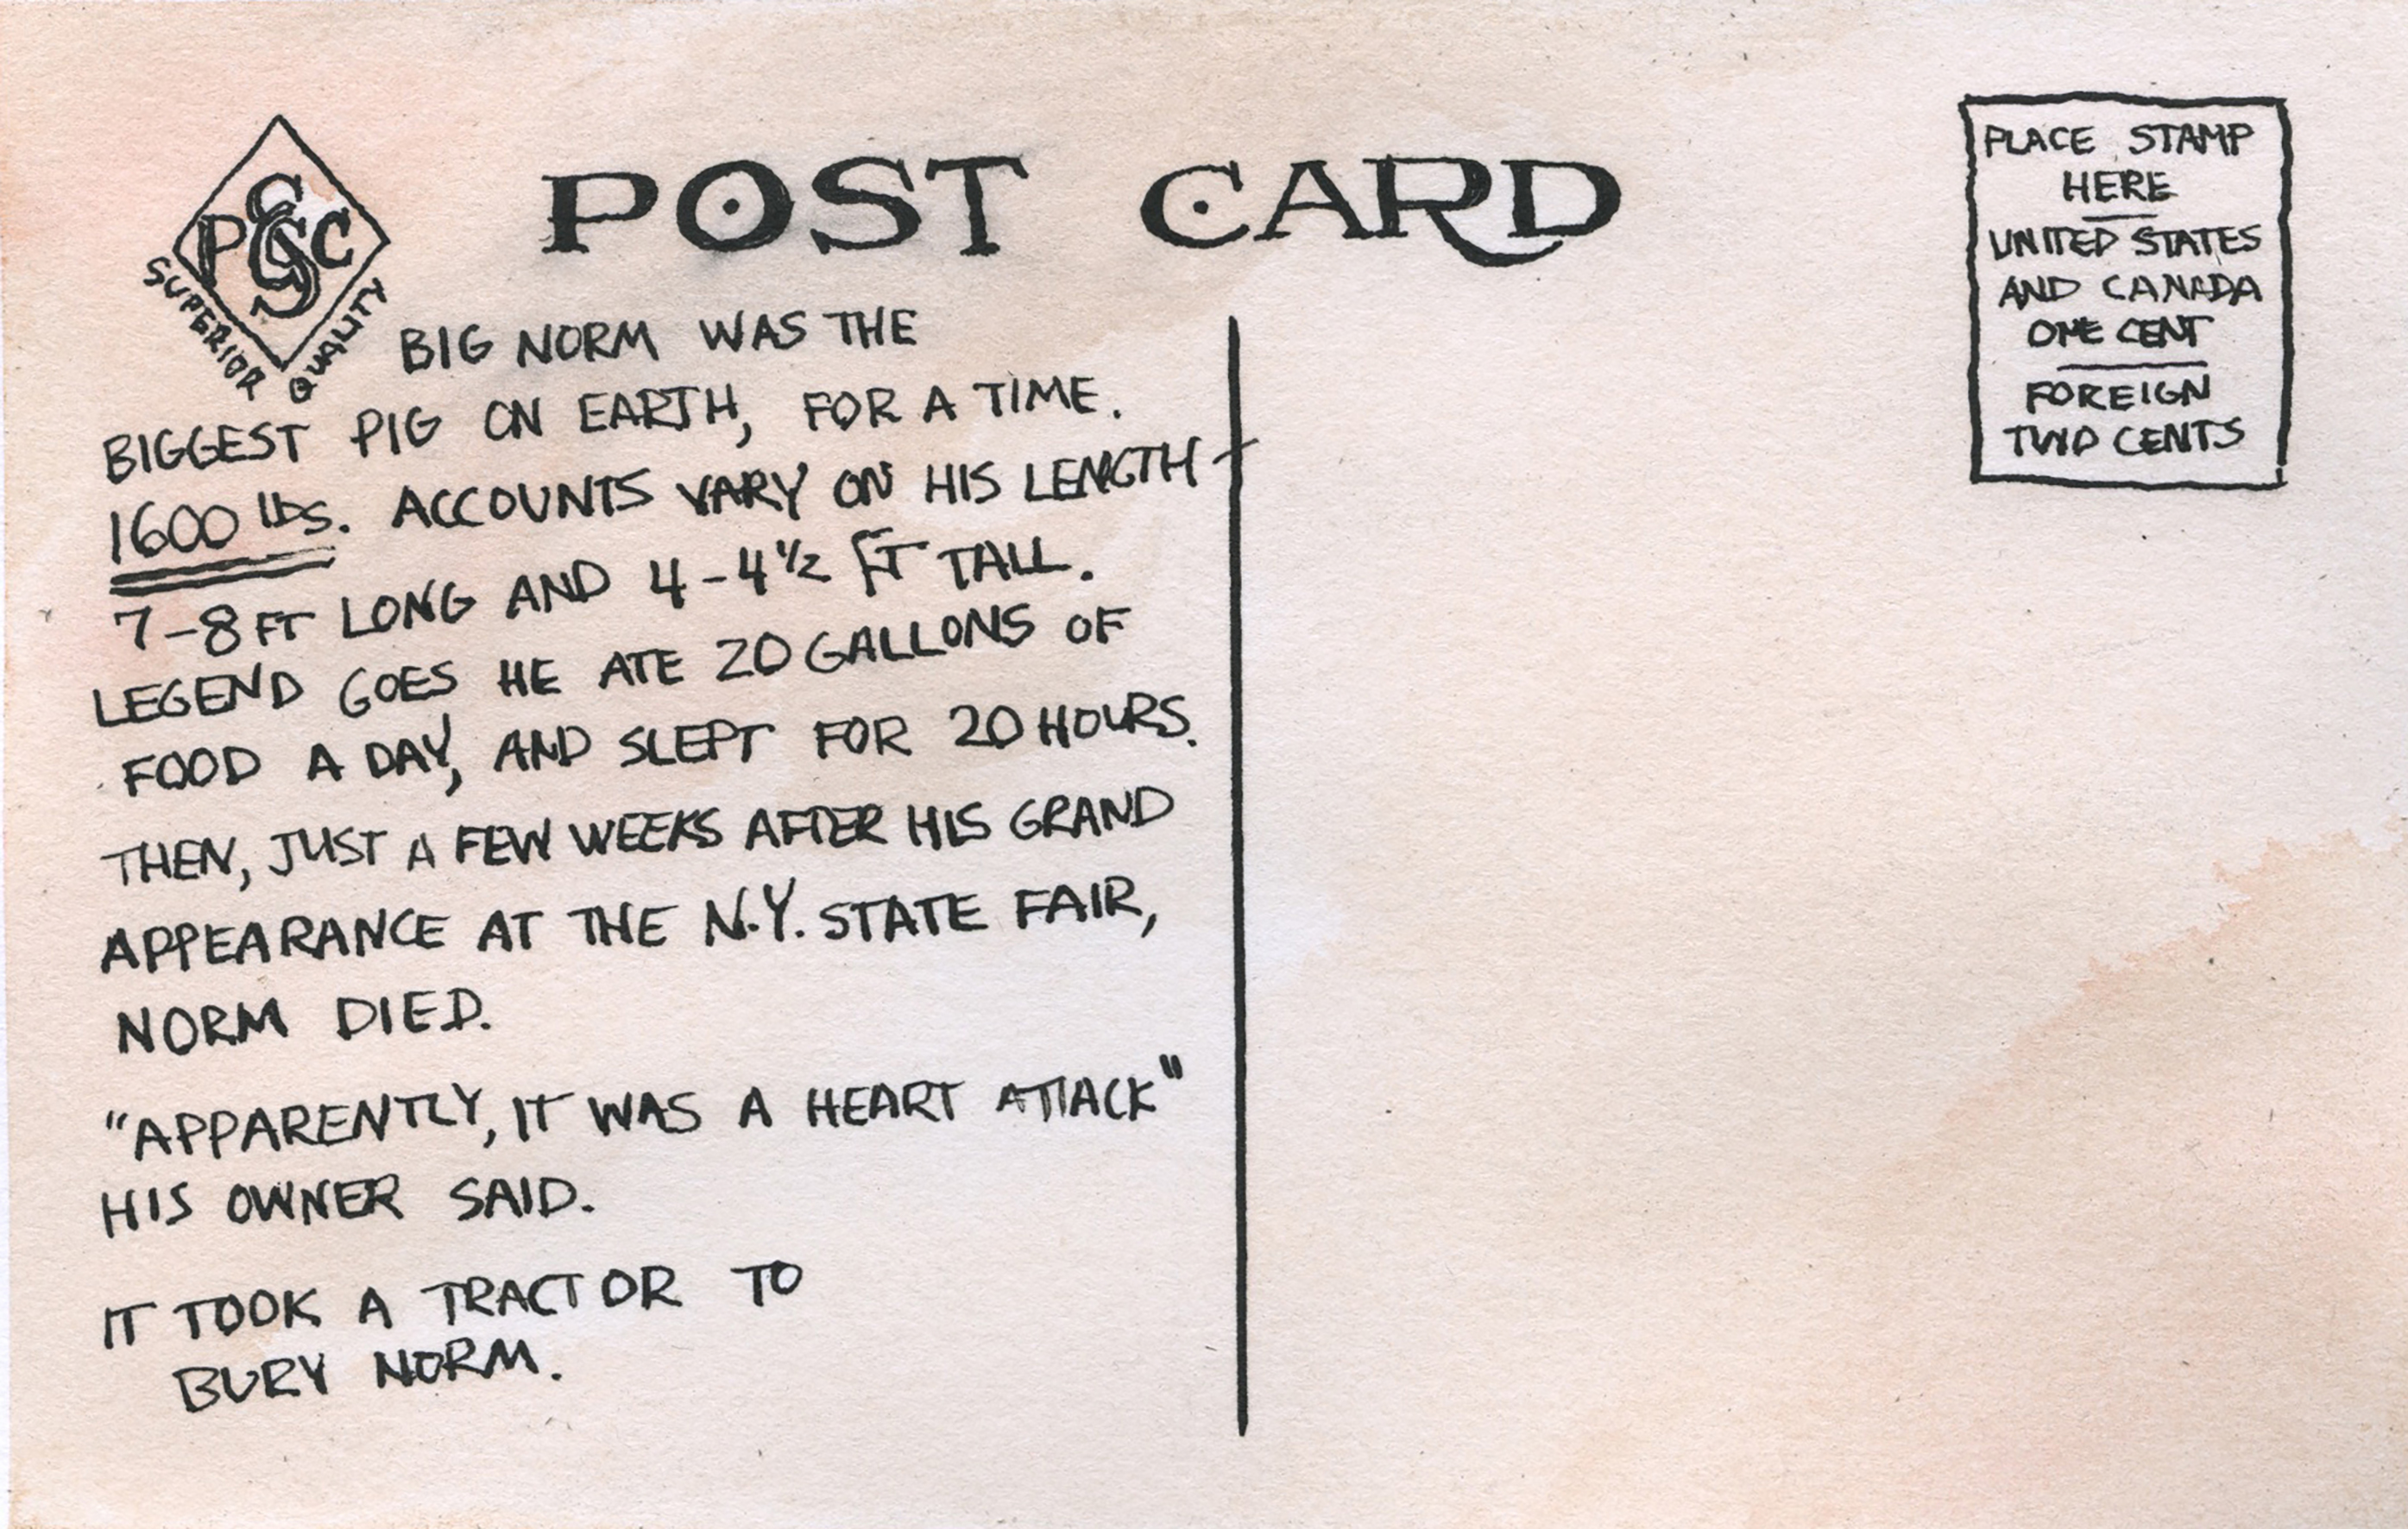 POST CARD
PLACE STAMP
HERE
UNITED STATES
AND CANADA
ONE CENT
FOREIGN
TWO CENTS
SUPERIOR QUALITY
BIG NORM WAS THE
BIGGEST PIG ON EARTH, FOR A TIME.
1600 lbs. ACCOUNTS VARY ON HIS LENGTH -
7-8 FT LONG AND 4-4 1/2 FT TALL.
LEGEND GOES HE ATE 20 GALLONS OF
FOOD A DAY, AND SLEPT FOR 20 HOURS.
THEN, JUST A FEW WEEKS AFTER HIS GRAND
APPEARANCE AT THE N.Y. STATE FAIR,
NORM DIED.
"APPARENTLY, IT WAS A HEART ATTACK"
HIS OWNER SAID.
IT TOOK A TRACTOR TO
BURY NORM.